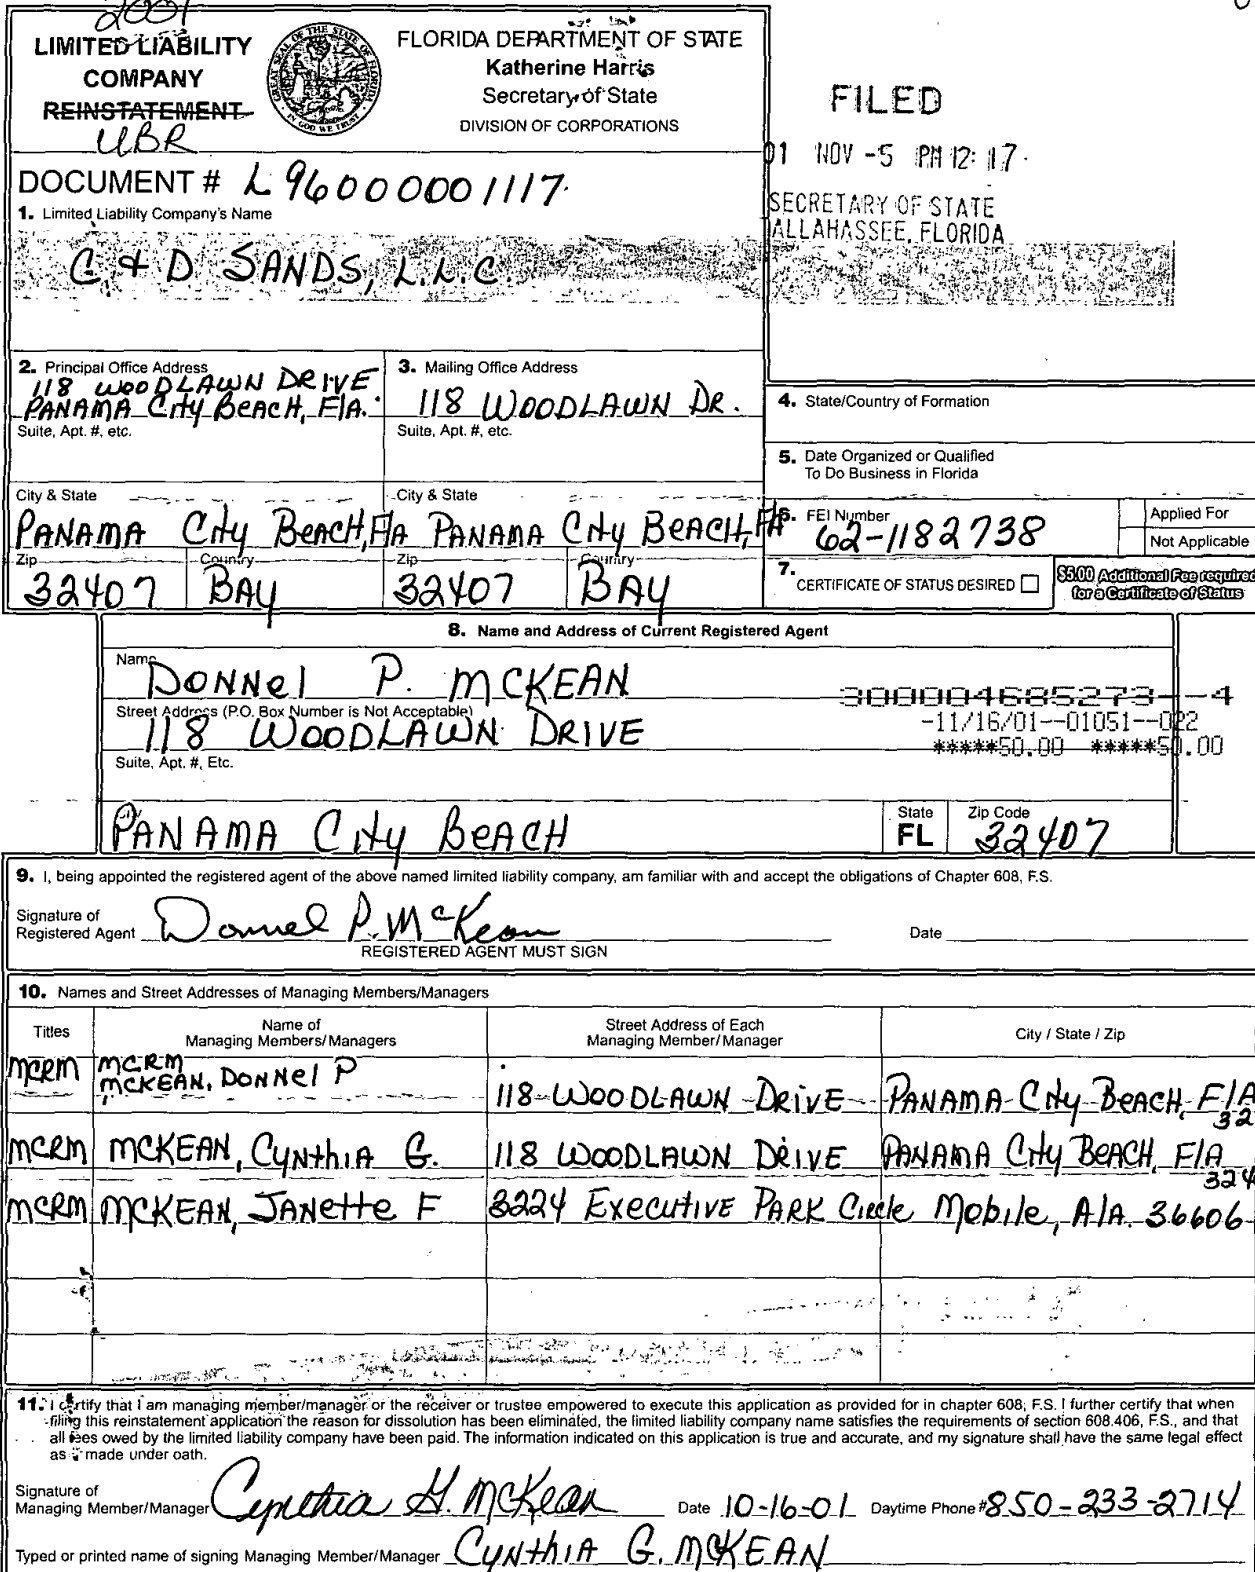 2001
LIMITED LIABILITY
COMPANY
REINSTATEMENT
UBR
FLORIDA DEPARTMENT OF STATE
Katherine Harris
Secretary of State
DIVISION OF CORPORATIONS
FILED
01 NOV -5 PM 12: 17
SECRETARY OF STATE
ALLAHASSEE, FLORIDA
DOCUMENT # L96000001117
1. Limited Liability Company's Name
C & D SANDS, L.L.C.
2. Principal Office Address
118 WOODLAWN DRIVE
PANAMA City BEACH, FlA.
Suite, Apt. #, etc.
3. Mailing Office Address
118 WOODLAWN DR.
Suite, Apt. #, etc.
4. State/Country of Formation
5. Date Organized or Qualified
To Do Business in Florida
City & State
PANAMA City BEACH, FlA
City & State
PANAMA City BEACH, FlA
6. FEI Number
62-1182738
Applied For
Not Applicable
Zip
32407
Country
BAY
Zip
32407
Country
BAY
7. CERTIFICATE OF STATUS DESIRED
$5.00 Additional Fee required
for a Certificate of Status
8. Name and Address of Current Registered Agent
Name
DONNEl P. MCKEAN
Street Address (P.O. Box Number is Not Acceptable)
118 WOODLAWN DRIVE
Suite, Apt. #, Etc.
300004685273--4
-11/16/01--01051--022
*****50.00 *****50.00
City
PANAMA City BEACH
State
FL
Zip Code
32407
9. I, being appointed the registered agent of the above named limited liability company, am familiar with and accept the obligations of Chapter 608, F.S.
Signature of
Registered Agent Donnel P. McKean
Date
REGISTERED AGENT MUST SIGN
10. Names and Street Addresses of Managing Members/Managers
Titles
Name of
Managing Members/Managers
Street Address of Each
Managing Member/Manager
City / State / Zip
MGRM MGRM
MCKEAN, DONNEl P 118 WOODLAWN DRIVE PANAMA City BEACH, FlA
32
MGRM MCKEAN, CYNthIA G. 118 WOODLAWN DRIVE PANAMA City BEACH, FlA
324
MGRM MCKEAN, JANette F 3224 EXECUTIVE PARK Circle Mobile, AlA. 36606
11. I certify that I am managing member/manager or the receiver or trustee empowered to execute this application as provided for in chapter 608, F.S. I further certify that when
filing this reinstatement application the reason for dissolution has been eliminated, the limited liability company name satisfies the requirements of section 608.406, F.S., and that
all fees owed by the limited liability company have been paid. The information indicated on this application is true and accurate, and my signature shall have the same legal effect
as if made under oath.
Signature of
Managing Member/Manager Cynthia G. McKean Date 10-16-01 Daytime Phone # 850-233-2714
Typed or printed name of signing Managing Member/Manager CYNthIA G. MCKEAN